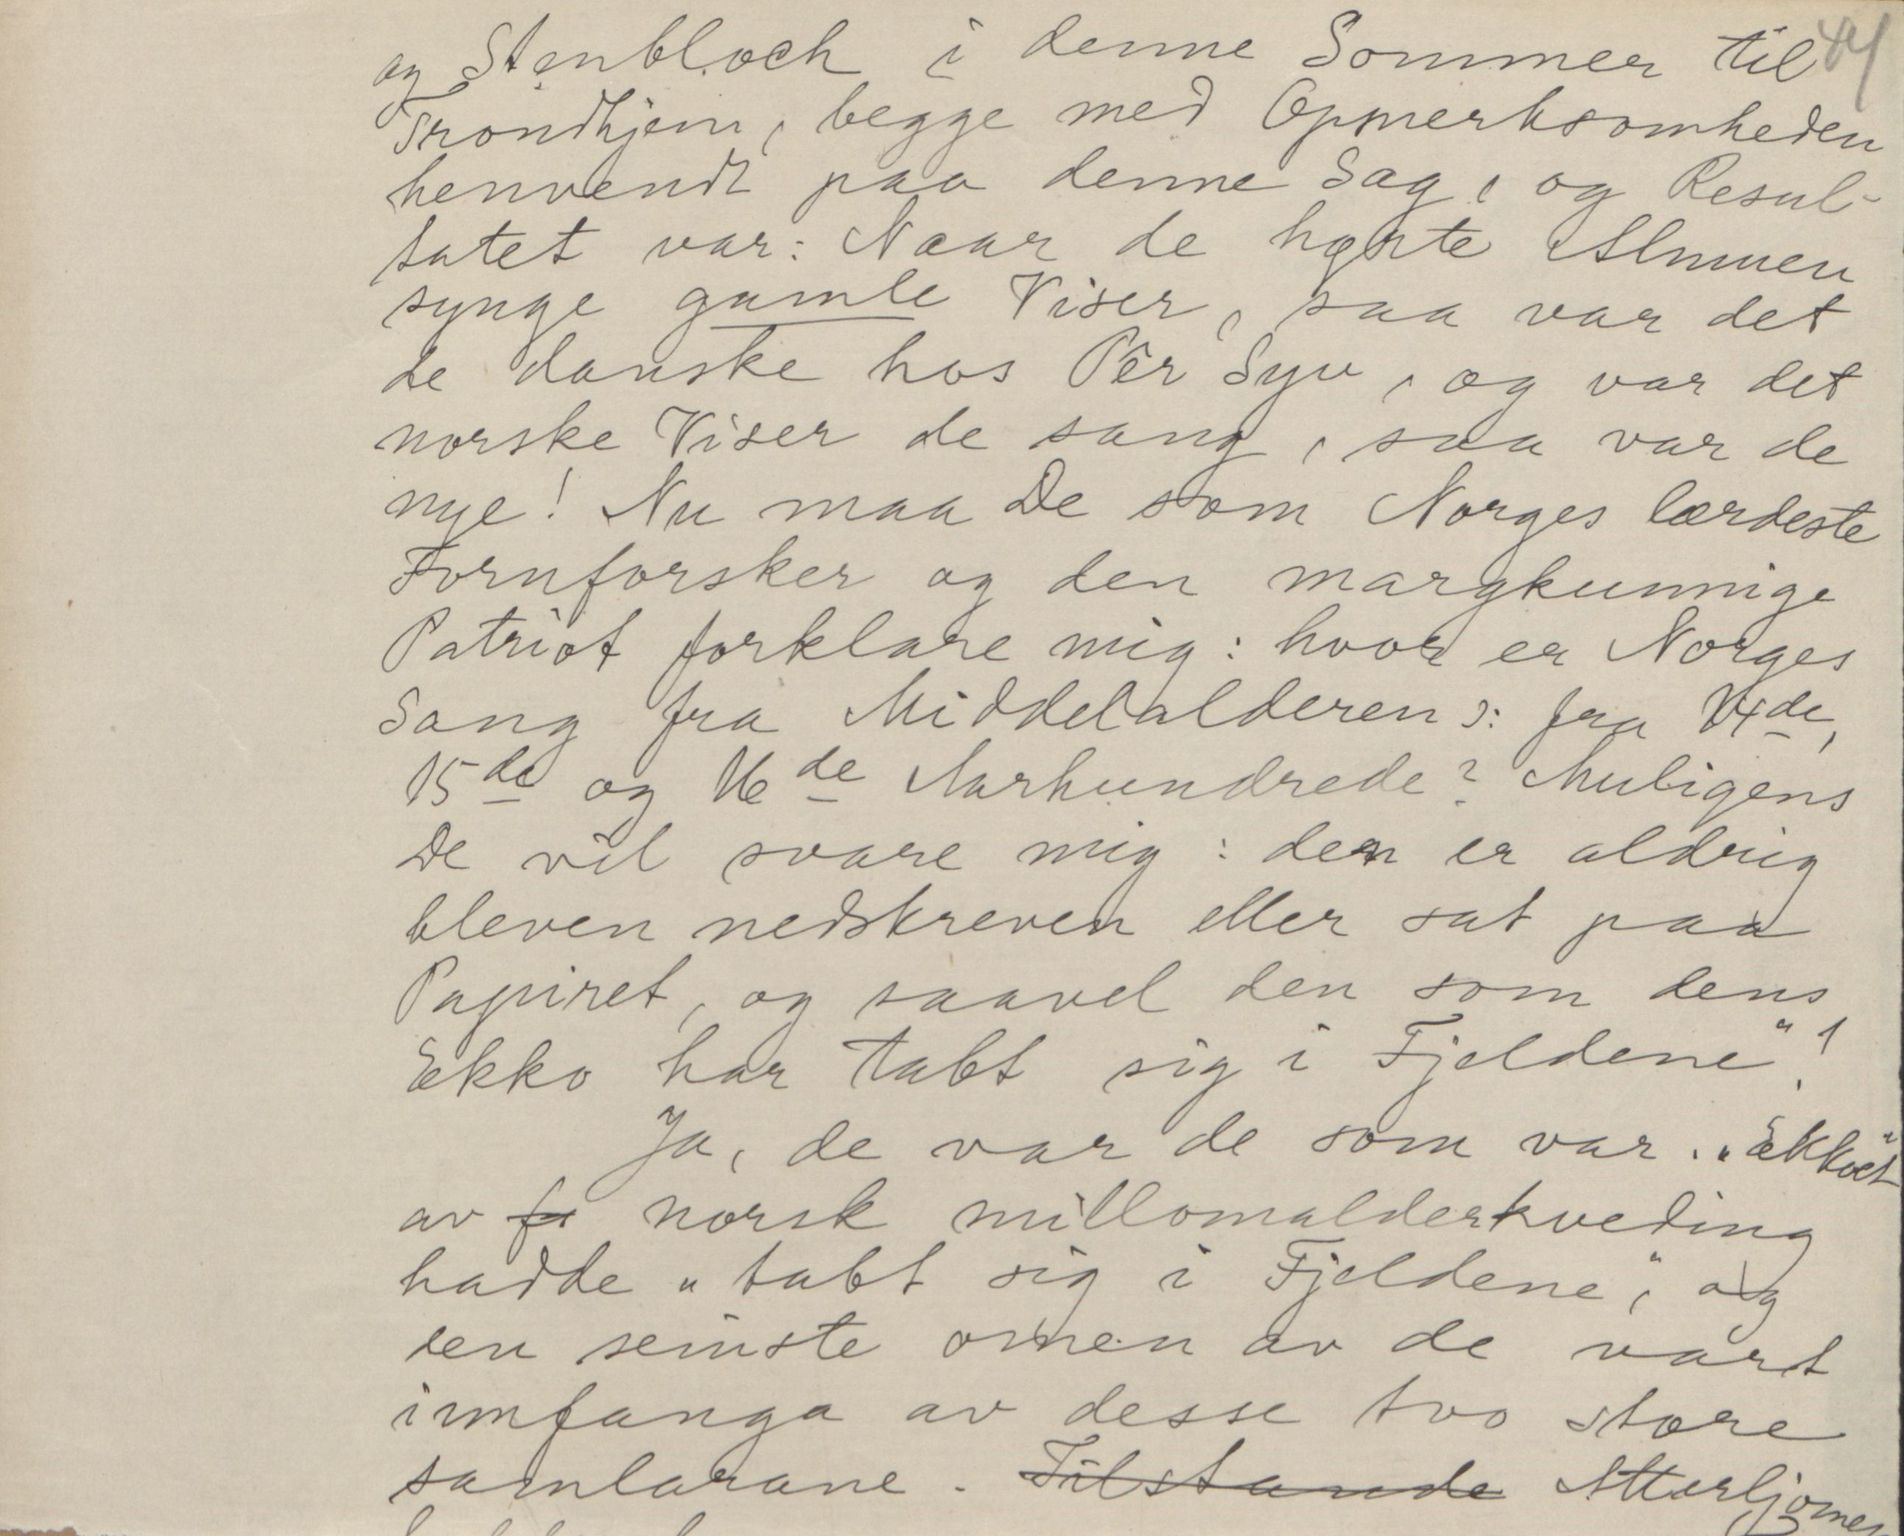 44
og Stenbloch i denne Sommer til
Trondhjem, begge med Opmerksomheden
henvendt paa denne Sag, og Resul-
tatet var: Naar de hørte Almuen
synge gamle Viser, saa var det
de danske hos Pêr Syv, og var det
norske Viser de sang, saa var de
nye! Nu maa De som Norges lærdeste
Fornforsker og den margkunnige
Patriot forklare mig: hvor er Norges
Sang fra Middelalderen ɔ: fra 14de,
15de og 16de Aarhundrede? Muligens
De vil svare mig: den er aldrig
bleven nedskreven eller sat paa
Papiret, og saavel den som dens
Ekko har tabt sig i Fjeldene"!
Ja, de var de som var. „Ekkoet"
av fo norsk millomalderkveding
hadde „tabt sig i Fjeldene", og
den seinste omen av de vart
innfanga av desse tvo store
samlarane. Tilstande Atterljomen